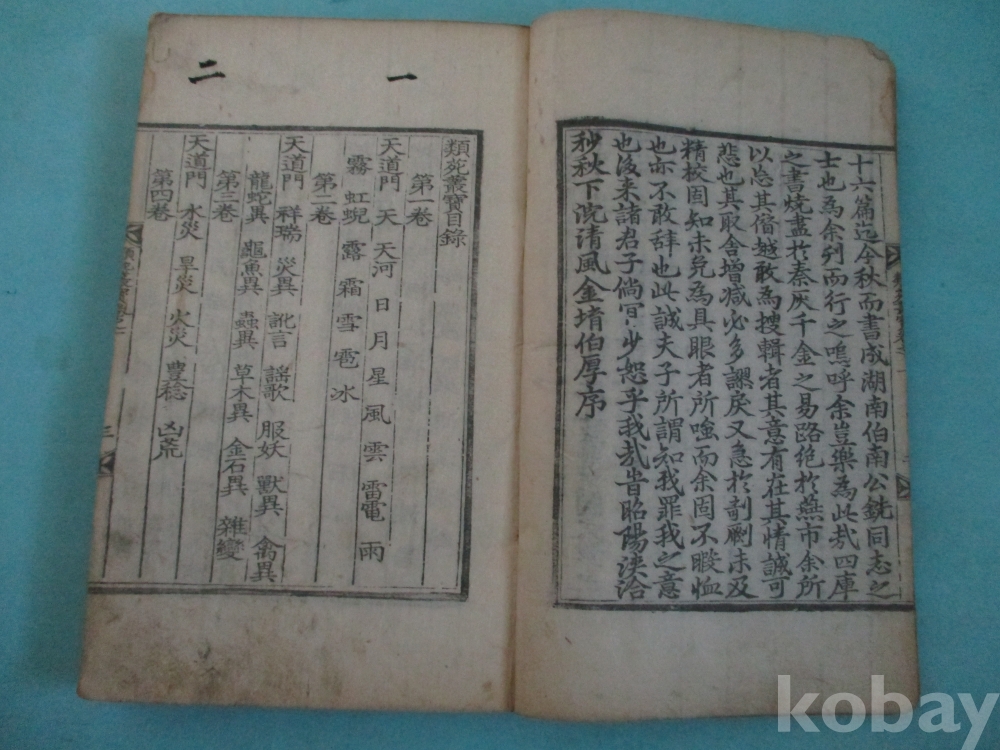 十六篇迄今秋而書成湖南伯南公銑同志之
士也為余列而行之嗚呼余豈樂為此㢤四庫
之書燒盡於秦灰千金之易路絶於燕市余所
以忘其僭越敢為搜輯者其意有在其情誠可
悲也其取舍增减必多謬戾又急於剞劂未及
精校固知未免為具眼者所嗤而余固不暇恤
也亦不敢辞也此誠夫子所謂知我罪我之意
也後来諸君子倘冝少恕乎我㢤旹昭陽浹洽
秒秋下浣清風金堉伯厚序
一
二
類苑叢寶目錄
第一卷
天道門 天 天河 日 月 星 風 雲 雷電 雨
霧 虹蜺 露 霜 雪 雹 冰
第二卷
天道門 祥瑞 災異 訛言 謡歌 服妖 獸異 禽異
龍蛇異 龜魚異 蟲異 草木異 金石異 雜變
第三卷
天道門 水災 旱災 火災 豊稔 凶荒
第四卷
三
kobay